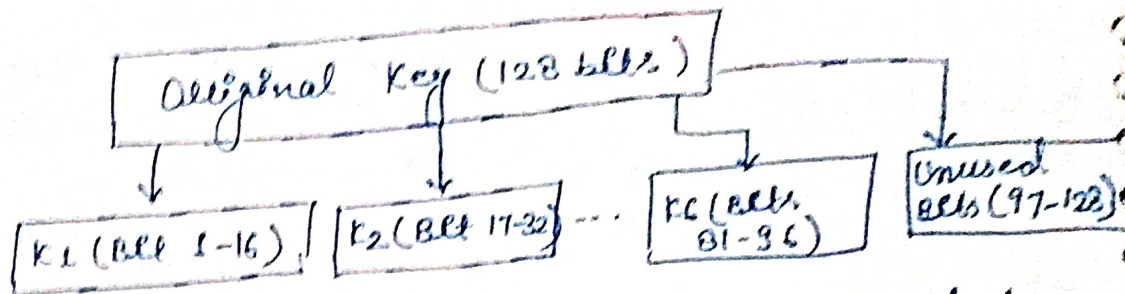 Original Key (128 bits)
K1 (Bit 1-16)
K2 (Bit 17-32)
....
K6 (Bits
81-96)
Unused
Bits (97-128)